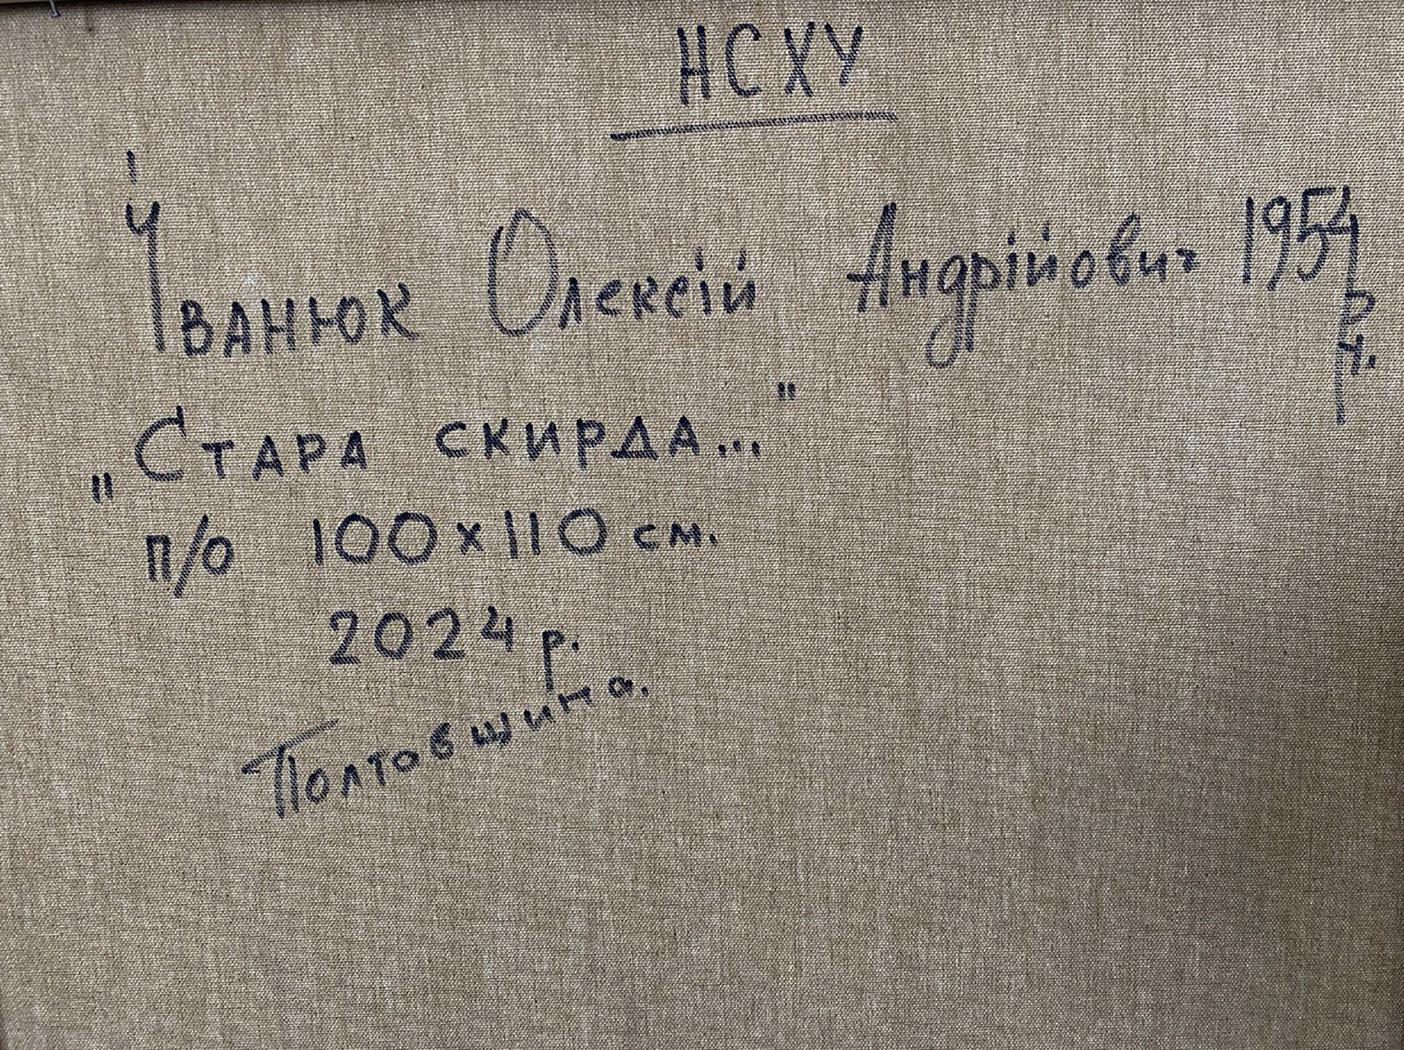 НСХУ
Іванюк Олексій Андрійович 1954 р.н.
„Стара скирда..."
п/о 100х110 см.
2024 р.
Полтовщина.